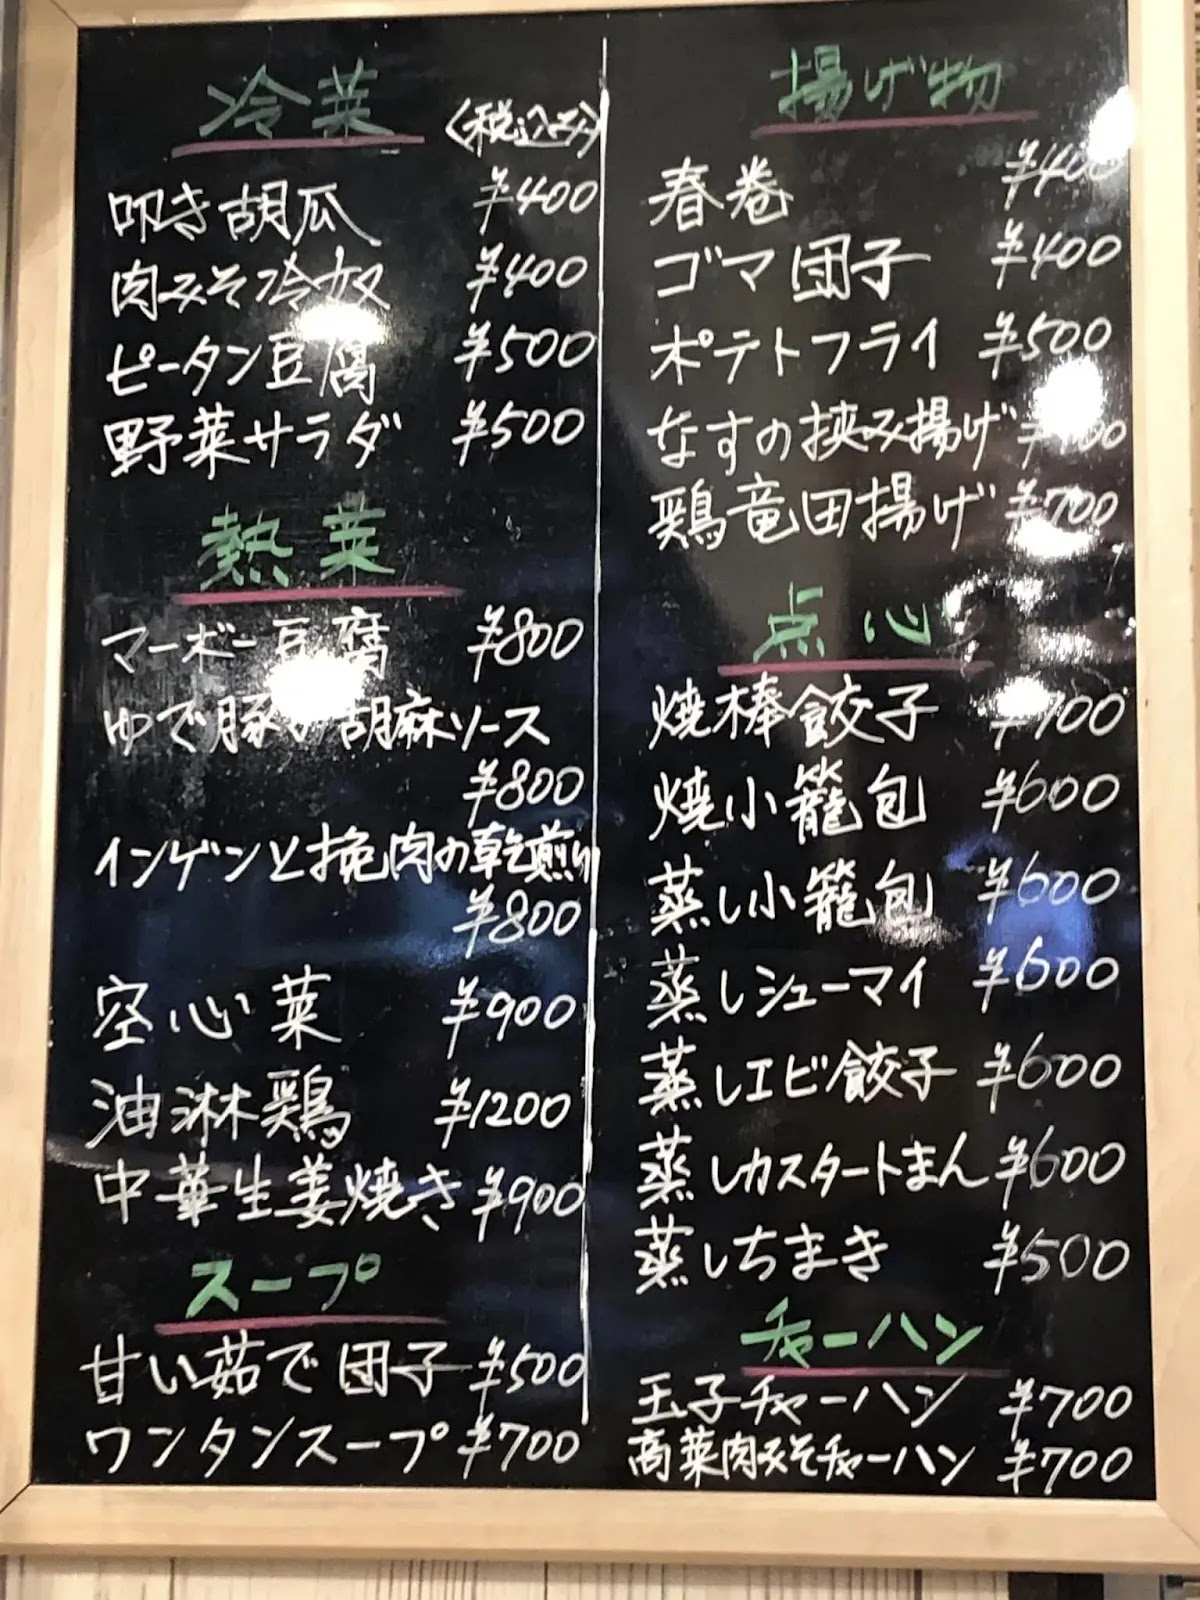 冷菜 〈税込み〉
叩き胡瓜 ¥400
肉みそ冷奴 ¥400
ピータン豆腐 ¥500
野菜サラダ ¥500
熱菜
マーボー豆腐 ¥800
ゆで豚の胡麻ソース
¥800
インゲンと挽肉の乾煎り
¥800
空心菜 ¥900
油淋鶏 ¥1200
中華生姜焼き ¥900
スープ
甘い茹で団子 ¥500
ワンタンスープ ¥700
揚げ物
春巻 ¥400
ゴマ団子 ¥400
ポテトフライ ¥500
なすの挟み揚げ
鶏竜田揚げ ¥700
点心
焼棒餃子
焼小籠包 ¥600
蒸し小籠包 ¥600
蒸しシューマイ ¥600
蒸しエビ餃子 ¥600
蒸しカスタートまん ¥600
蒸しちまき ¥500
チャーハン
玉子チャーハン ¥700
高菜肉みそチャーハン ¥700